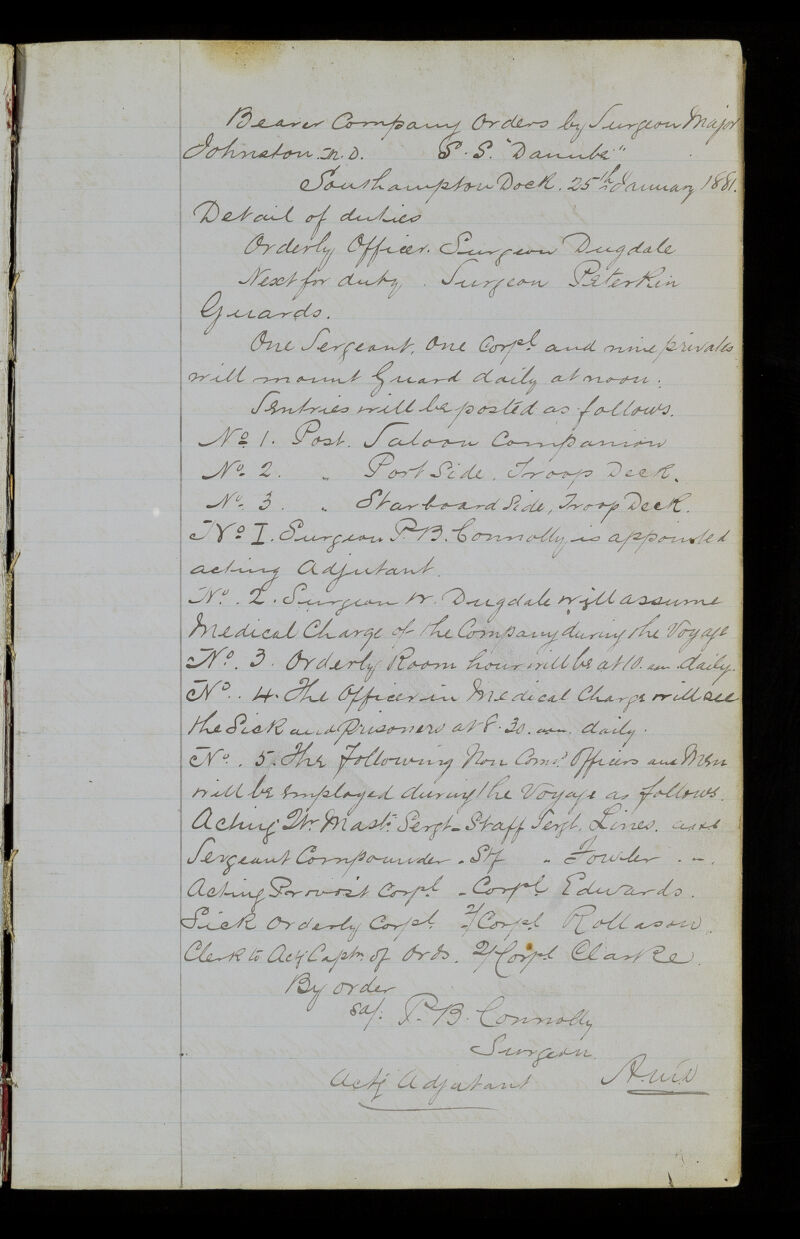 Bearer Company Orders by Surgeon Major
Johnston. M.D. S.S. "Danube"
Southampton Dock. 25th January 1881.
Detail of duties
Orderly Officer. Surgeon Dugdale
Next for duty. Surgeon Peterkin
Guards.
One Sergeant, One Corpl and nine privates
will mount Guard daily at noon.
Sentries will be posted as follows.
No 1. Post. Saloon Companion
No 2. " Port Side, Troop Deck.
No 3. " Starboard Side, Troop Deck.
No I. Surgeon P.B. Connolly is appointed
acting Adjutant.
No. 2. Surgeon W. Dugdale will assume
Medical Charge of the Company during the Voyage
No. 3. Orderly Room hour will be at 10. am daily.
No. 4. The Officer in Medical Charge will see
the Sick and Prisoners at 8.30. am. daily.
No. 5. The Following Non Comd Officers and Men
will be employed during the Voyage as follows.
Acting Qr. Mastr Sergt - Staff Sergt. Lines.
Sergeant Compounder - Stf " Fowler . ".
Acting Provost Corpl - Corpl Edwards.
Sick Orderly Corpl 2/Corpl Rollason.
Clerk to Actg Captn of Ords. 2/Corpl Clarke.
By order
P.B. Connolly
Surgeon.
Actg Adjutant